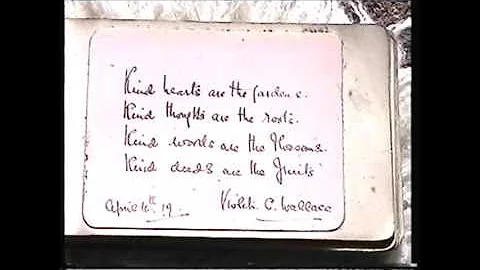 Kind hearts are the gardens.
Kind thoughts are the roots.
Kind words are the blossoms.
Kind deeds are the fruits
April 16th 19.
Violet C. Wallace